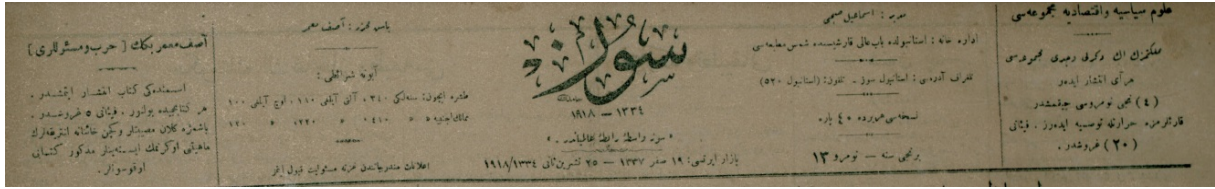 علوم سیاسیه و اقتصادیه مجموعه‌سی
مملكتزك اك دكرلی رجدی مجموعه‌سی
هر آی انتشار ایدەر
(٤) نجی نومروسی چیقمشدر
قارئلرمزه حرارتله توصیه ایدەرز. فیئاتی
(٢٠) غروشدر.
مدیر : اسماعیل صبحی
اداره خانه : استانبولده باب عالی قارشیسنده شمس مطبعه‌سی
تلغراف آدره‌سی : استانبول سوز ــ تلفون: (استانبول ٥٢٠)
نسخه‌سی هریرده ٤٠ پاره
برنجی سنه — نومرو ١٣
سوز
١٣٣٤
١٩١٨
« سوز واسطهٔ رابطهٔ اهالیدر. »
بازار ایرتسی: ١٩ صفر ١٣٣٧ — ٢٥ تشرین ثانی ١٩١٨/١٣٣٤
باش محرر : آصف معمر
آبونه شرائطی :
طشره ایچون: سنه‌لكی ٢٤٠، آلتی آیلغی ١١٠، اوچ آیلغی ١٠٠
ممالك اجنبیه « « ٤١٠، « « ٢٢٠، « « ١٢٠
اعلانك مندرجاتندن غزته مسئولیت قبول ایتمز
آصف معمر بكك [ حرب و مسئوللری ]
اسمنده‌كی كتاب انتشار ایتمشدر.
هر كتابجیده بولنور. فیئاتی ٥ غروشدر.
باشمزه كلان مصیبتلر و كیچن خائنانه انتریقه‌لرك
ماهیتی اوكرنمك ایسته‌ینلر مذكور كتابی
اوقوسونلر.